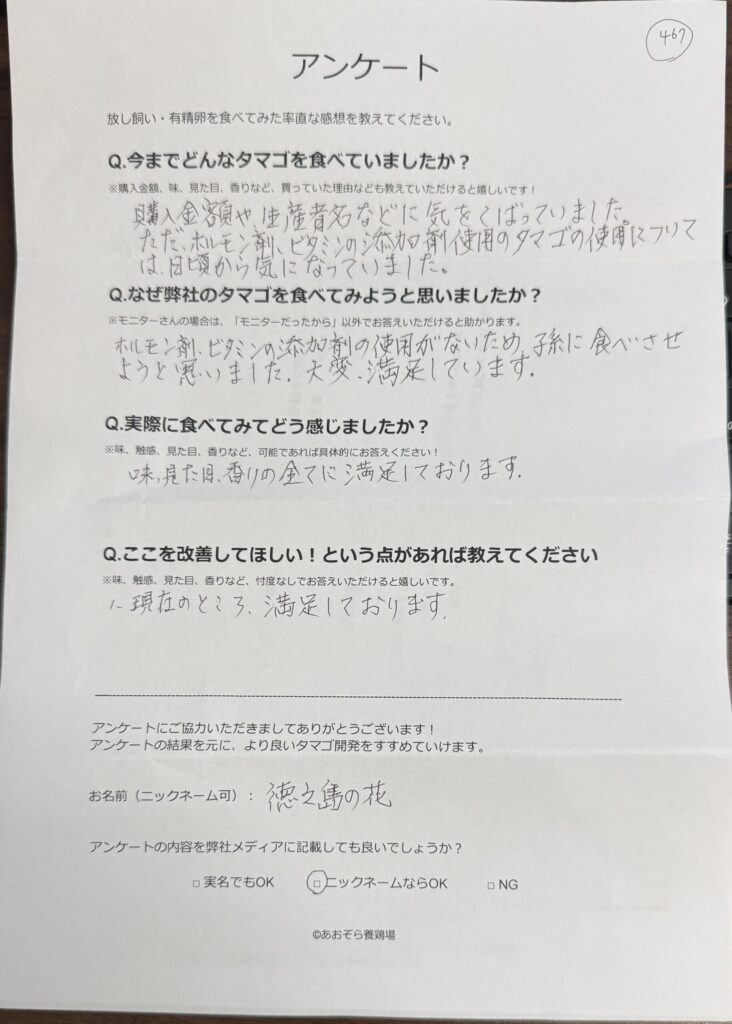 467
アンケート
放し飼い・有精卵を食べてみた率直な感想を教えてください。
Q.今までどんなタマゴを食べていましたか？
※購入金額、味、見た目、香りなど、買っていた理由なども教えていただけると嬉しいです！
購入金額や生産者名などに気をくばっていました。
ただ、ホルモン剤、ビタミンの添加剤使用のタマゴの使用について
は、日頃から気になっていました。
Q.なぜ弊社のタマゴを食べてみようと思いましたか？
※モニターさんの場合は、「モニターだったから」以外でお答えいただけると助かります。
ホルモン剤、ビタミンの添加剤の使用がないため、孫に食べさせ
ようと思いました。大変、満足しています。
Q.実際に食べてみてどう感じましたか？
※味、触感、見た目、香りなど、可能であれば具体的にお答えください！
味、見た目、香りの全てに満足しております。
Q.ここを改善してほしい！という点があれば教えてください
※味、触感、見た目、香りなど、忖度なしでお答えいただけると嬉しいです。
現在のところ、満足しております。
アンケートにご協力いただきましてありがとうございます！
アンケートの結果を元に、より良いタマゴ開発をすすめていけます。
お名前（ニックネーム可）： 徳之島の花
アンケートの内容を弊社メディアに記載しても良いでしょうか？
□ 実名でもOK □ニックネームならOK □ NG
©あおぞら養鶏場